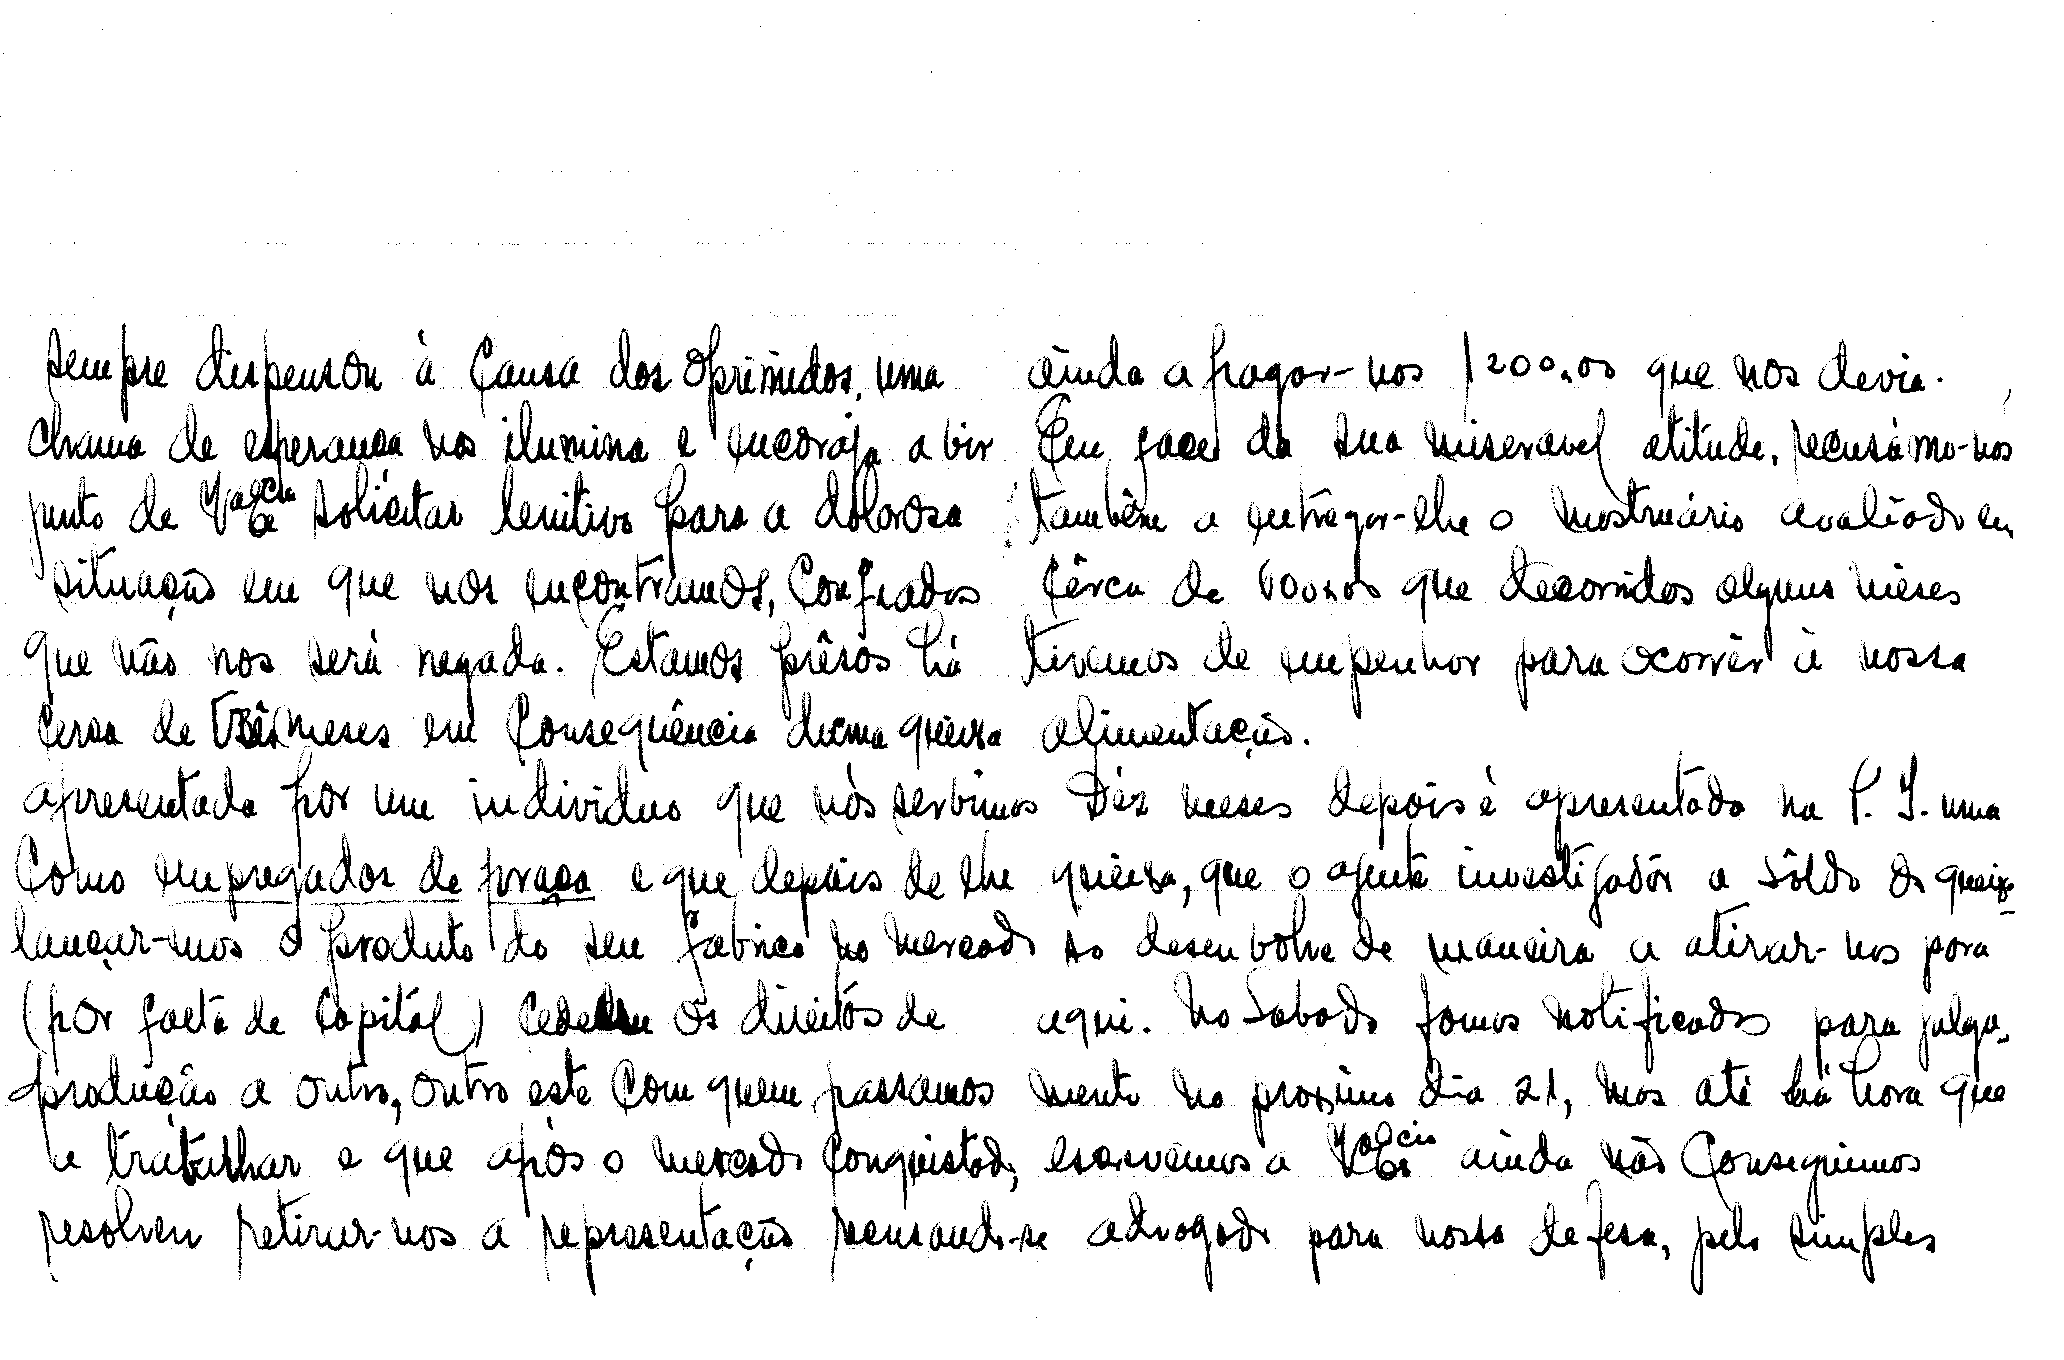 sempre dispensou à Causa dos Oprimidos, uma
chama de esperança nos ilumina e encoraja a vir
junto de V.ª Ex.cia solicitar lenitivo para a dolorosa
situação em que nos encontramos, Confiados
que não nos será negado. Estamos prêsos há
cerca de três meses em Consequência duma queixa
apresentada por um individuo que nós servimos
Como empregados de praça e que depois de lhe
lançar-mos o produto do seu fabrico no mercado
(por falta de Capitál) cedem os direitos de
produção a outro, outro este Com quem passamos
a trabalhar e que após o mercado Conquistado,
resolveu retirar-nos a representação recusando-se
ainda a pagar-nos 1200,00 que nos devia.
Em face da sua miseravel atitude, recusámo-nos
também a entregar-lhe o mostruário avaliado em
Cêrca de 600,00 que decorridos alguns mêses
tivemos de empenhar para ocorrêr à nossa
alimentação.
Déz meses depois é apresentada na P. J. uma
queixa, que o agente investigadôr a sôldo do queixo-
so desenvolve de maneira a atirar-nos para
aqui. No Sabado fomos notificados para julga-
mento no proximo dia 21, mas até há hora que
escrevemos a V.ª Ex.cia ainda não Conseguimos
advogado para nossa defesa, pelo simples